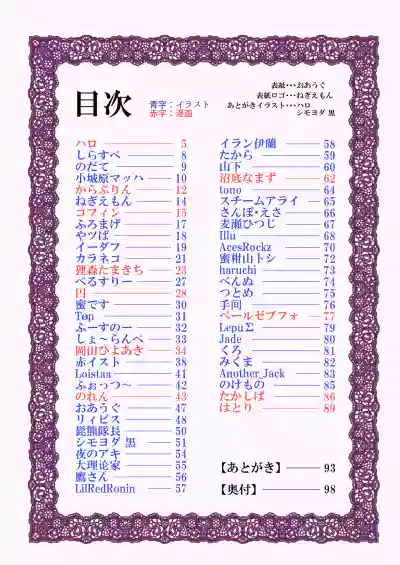 表紙･･･おあうぐ
表紙ロゴ･･･ねぎえもん
あとがきイラスト･･･ハロ
シモヨダ 黒
目次
青字：イラスト
赤字：漫画
ハロ 5
しらすべ 8
のだて 9
小城原マッハ 10
からぷりん 12
ねぎえもん 14
コフィン 15
ふろまげ 17
やツぱ 18
イーダフ 19
カラネコ 21
狸森たまきち 23
べるすりー 27
円 28
蜜です 30
Tøp 31
ふーすのー 32
しょ～らんぺ 33
岡田ひよあき 34
赤イスト 38
Loistaa 41
ふぉっつ～ 42
のれん 43
おあうぐ 47
リィピス 48
髭熊隊長 50
シモヨダ 黒 51
夜のアキ 54
大理论家 55
鷹さん 56
LilRedRonin 57
イラン伊蘭 58
たから 59
山下 60
沼底なまず 62
tono 64
スチームアライ 65
さんぼ・えさ 66
麦瀬ひつじ 67
Illu 68
AcesRockz 70
蜜柑山トシ 72
haruchi 73
べんぬ 74
つとめ 75
手河 76
ベールゼブフォ 77
LepuΣ 79
Jade 80
くろ 81
みくま 82
Another_Jack 83
のけもの 85
たかしば 86
はとり 89
【あとがき】 93
【奥付】 98